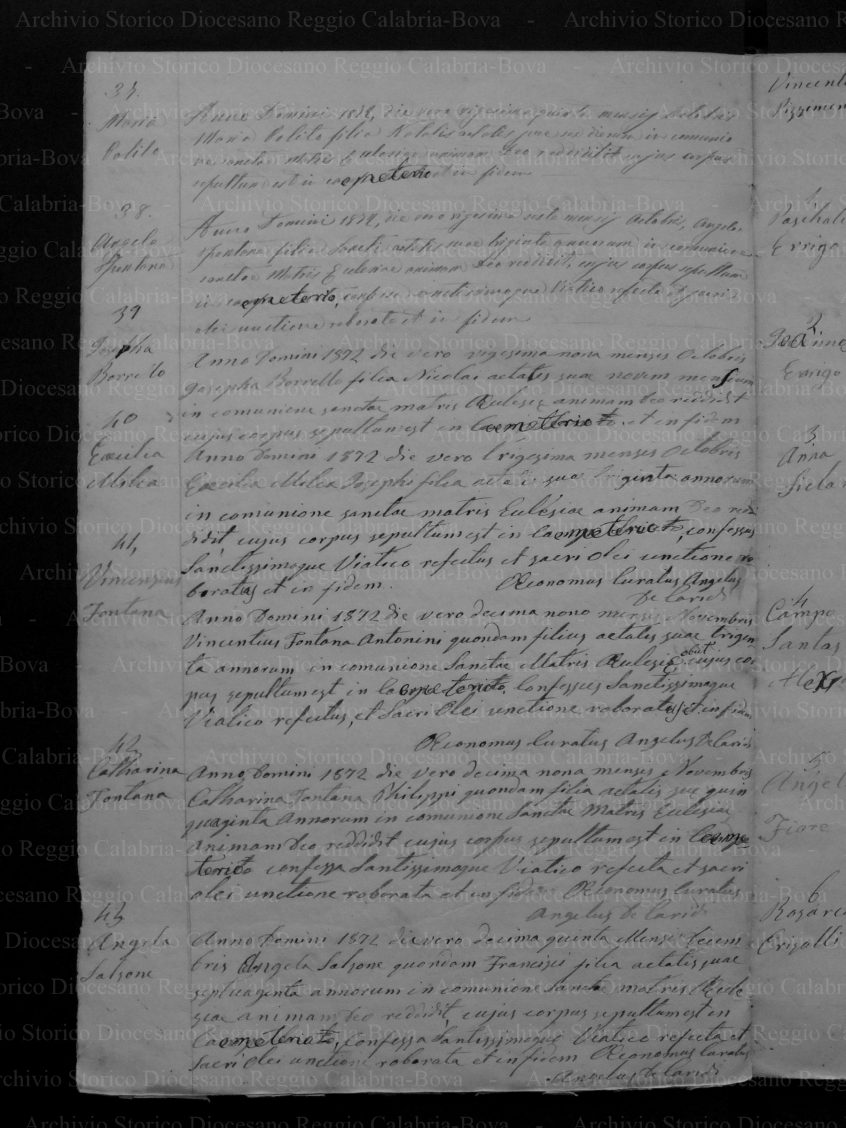 37.
Maria
Polito
Anno Domini 1872, die vero vigesima quinta mensis Octobris
Maria Polito filia Natalis aetatis suae in comunio
ne sanctae Matris Eclesiae animam Deo reddidit cujus corpus
sepultum est in coemeterio et in fidem
38.
Angela
Fontana
Anno Domini 1872, die vero vigesima mensis Octobris, Angela
Fontana filia aetatis suae triginta annorum in comunione
sanctae Matris Eclesiae animam Deo reddidit, cujus corpus sepultum
in coemeterio, confessa sanctissimoque Viatico refecta et sacri
olei unctione roborata et in fidem
39
Josepha
Borrello
Anno Domini 1872 die vero vigesima nona menses Octobris
Josepha Borrello filia Nicolai aetatis suae novem mensium
in comunione sanctae matris Eclesiae animam Deo reddidit
cujus corpus sepultum est in Coemeterio et in fidem
40
Excilia
Melca
Anno Domini 1872 die vero trigesima menses Octobris
Melca Josephi filia aetatis suae triginta annorum
in comunione sanctae matris Eclésiae animam Deo red
didit cujus corpus sepultum est in Coemeterio, confessus
Sanctissimoque Viatico refectus et sacri Olei unctione ro
boratus et in fidem. Œconomus Curatus Angelus
De Caridi
41
Vincenzius
Fontana
Anno Domini 1872 die vero decima nono mensis Novembris
Vincentius Fontana Antonini quondam filius aetatis suae trigin
ta annorum in comunione Sanctae Matris Œclesie obiit cujus cor
pus sepultum est in Coemeterio, Confessus Sanctissimoque
Viatico refectus, et Sacri Olei unctione roboratus et in fidem
Œconomus Curatus Angelus De Caridi
42
Catharina
Fontana
Anno Domini 1872 die vero decima nona menses Novembris
Catharina Fontana Philippi quondam filia aetatis sue quin
quaginta Annorum in comunione Sanctae Matris Eclesiae
Animam Deo reddidit cujus corpus sepultum est in Coeme
terio confessa Santissimoque Viatico refecta et sacri
olei unctione roborata et in fidem Œconomus Curatus
Angelus De Caridi
43
Angela
Salsone
Anno Domini 1872 die vero decima quinta Mensis Decem
bris Angela Salsone quondam Francisci filia aetatis suae
septuaginta annorum in comunione Sanctae matris Œcle
siae animam Deo reddidit, cujus corpus sepultum est in
Coemeterio, Confessa Santissimoque Viatico refecta et
Sacri Olei unctione roborata et in fidem Œconomus Curatus
Angelus De Caridi
Vincent
1
Paschali
Errigo
2
Errigo
3
Anna
4
Campo
Santas
5
Angel
Fiore
6
Rosaria
Crisalli
Archivio Storico Diocesano Reggio Calabria-Bova